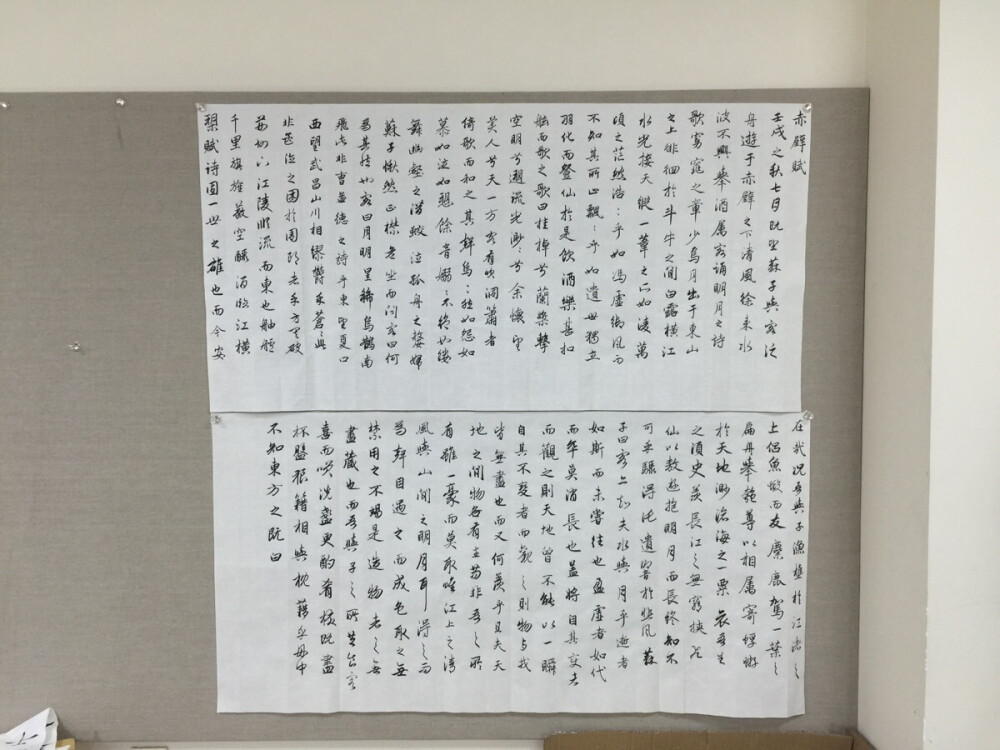 赤壁賦
壬戌之秋七月既望蘇子與客泛
舟遊于赤壁之下清風徐来水
波不興舉酒屬客誦明月之詩
歌窈窕之章少焉月出于東山
之上徘徊於斗牛之間白露横江
水光接天縱一葦之所如凌萬
頃之茫然浩〻乎如馮虚御風而
不知其所止飄〻乎如遺世獨立
羽化而登仙於是飲酒樂甚扣
舷而歌之歌曰桂棹兮蘭槳擊
空明兮遡流光渺〻兮余懷望
美人兮天一方客有吹洞簫者
倚歌而和之其聲烏〻然如怨如
慕如泣如愬餘音嫋〻不絶如縷
舞幽壑之潛蛟泣孤舟之嫠婦
蘇子愀然正襟危坐而問客曰何
為其然也客曰月明星稀烏鵲南
飛此非曹孟德之詩乎東望夏口
西望武昌山川相繆鬱乎蒼〻此
非孟德之困於周郎者乎方其破
荆州下江陵順流而東也舳艫
千里旗旌蔽空釃酒臨江橫
槊賦詩固一世之雄也而今安
在哉况吾與子漁樵於江渚之
上侶魚蝦而友麋鹿駕一葉之
扁舟舉匏尊以相屬寄蜉蝣
於天地渺滄海之一粟哀吾生
之須臾羨長江之無窮挾飛
仙以遨遊抱明月而長終知不
可乎驟得託遺響於悲風蘇
子曰客亦知夫水與月乎逝者
如斯而未嘗往也盈虚者如代
而卒莫消長也蓋將自其變者
而觀之則天地曾不能以一瞬
自其不變者而觀之則物与我
皆無盡也而又何羨乎且夫天
地之間物各有主苟非吾之所
有雖一毫而莫取惟江上之清
風與山間之明月耳得之而
為聲目遇之而成色取之無
禁用之不竭是造物者之無
盡藏也而吾與子之所共食客
喜而笑洗盞更酌肴核既盡
杯盤狼籍相與枕藉乎舟中
不知東方之既白